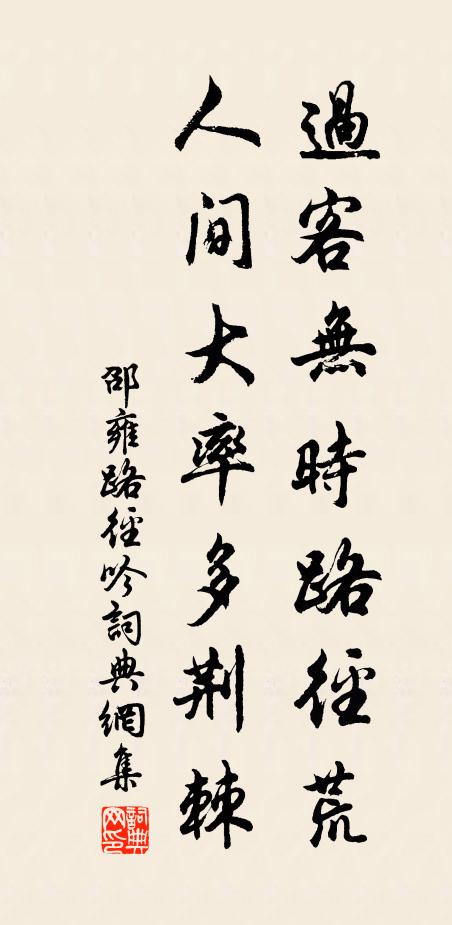 過客無時路徑荒
人間大率多荆棘
邵雍路徑吟詞典網集
詞典
网印